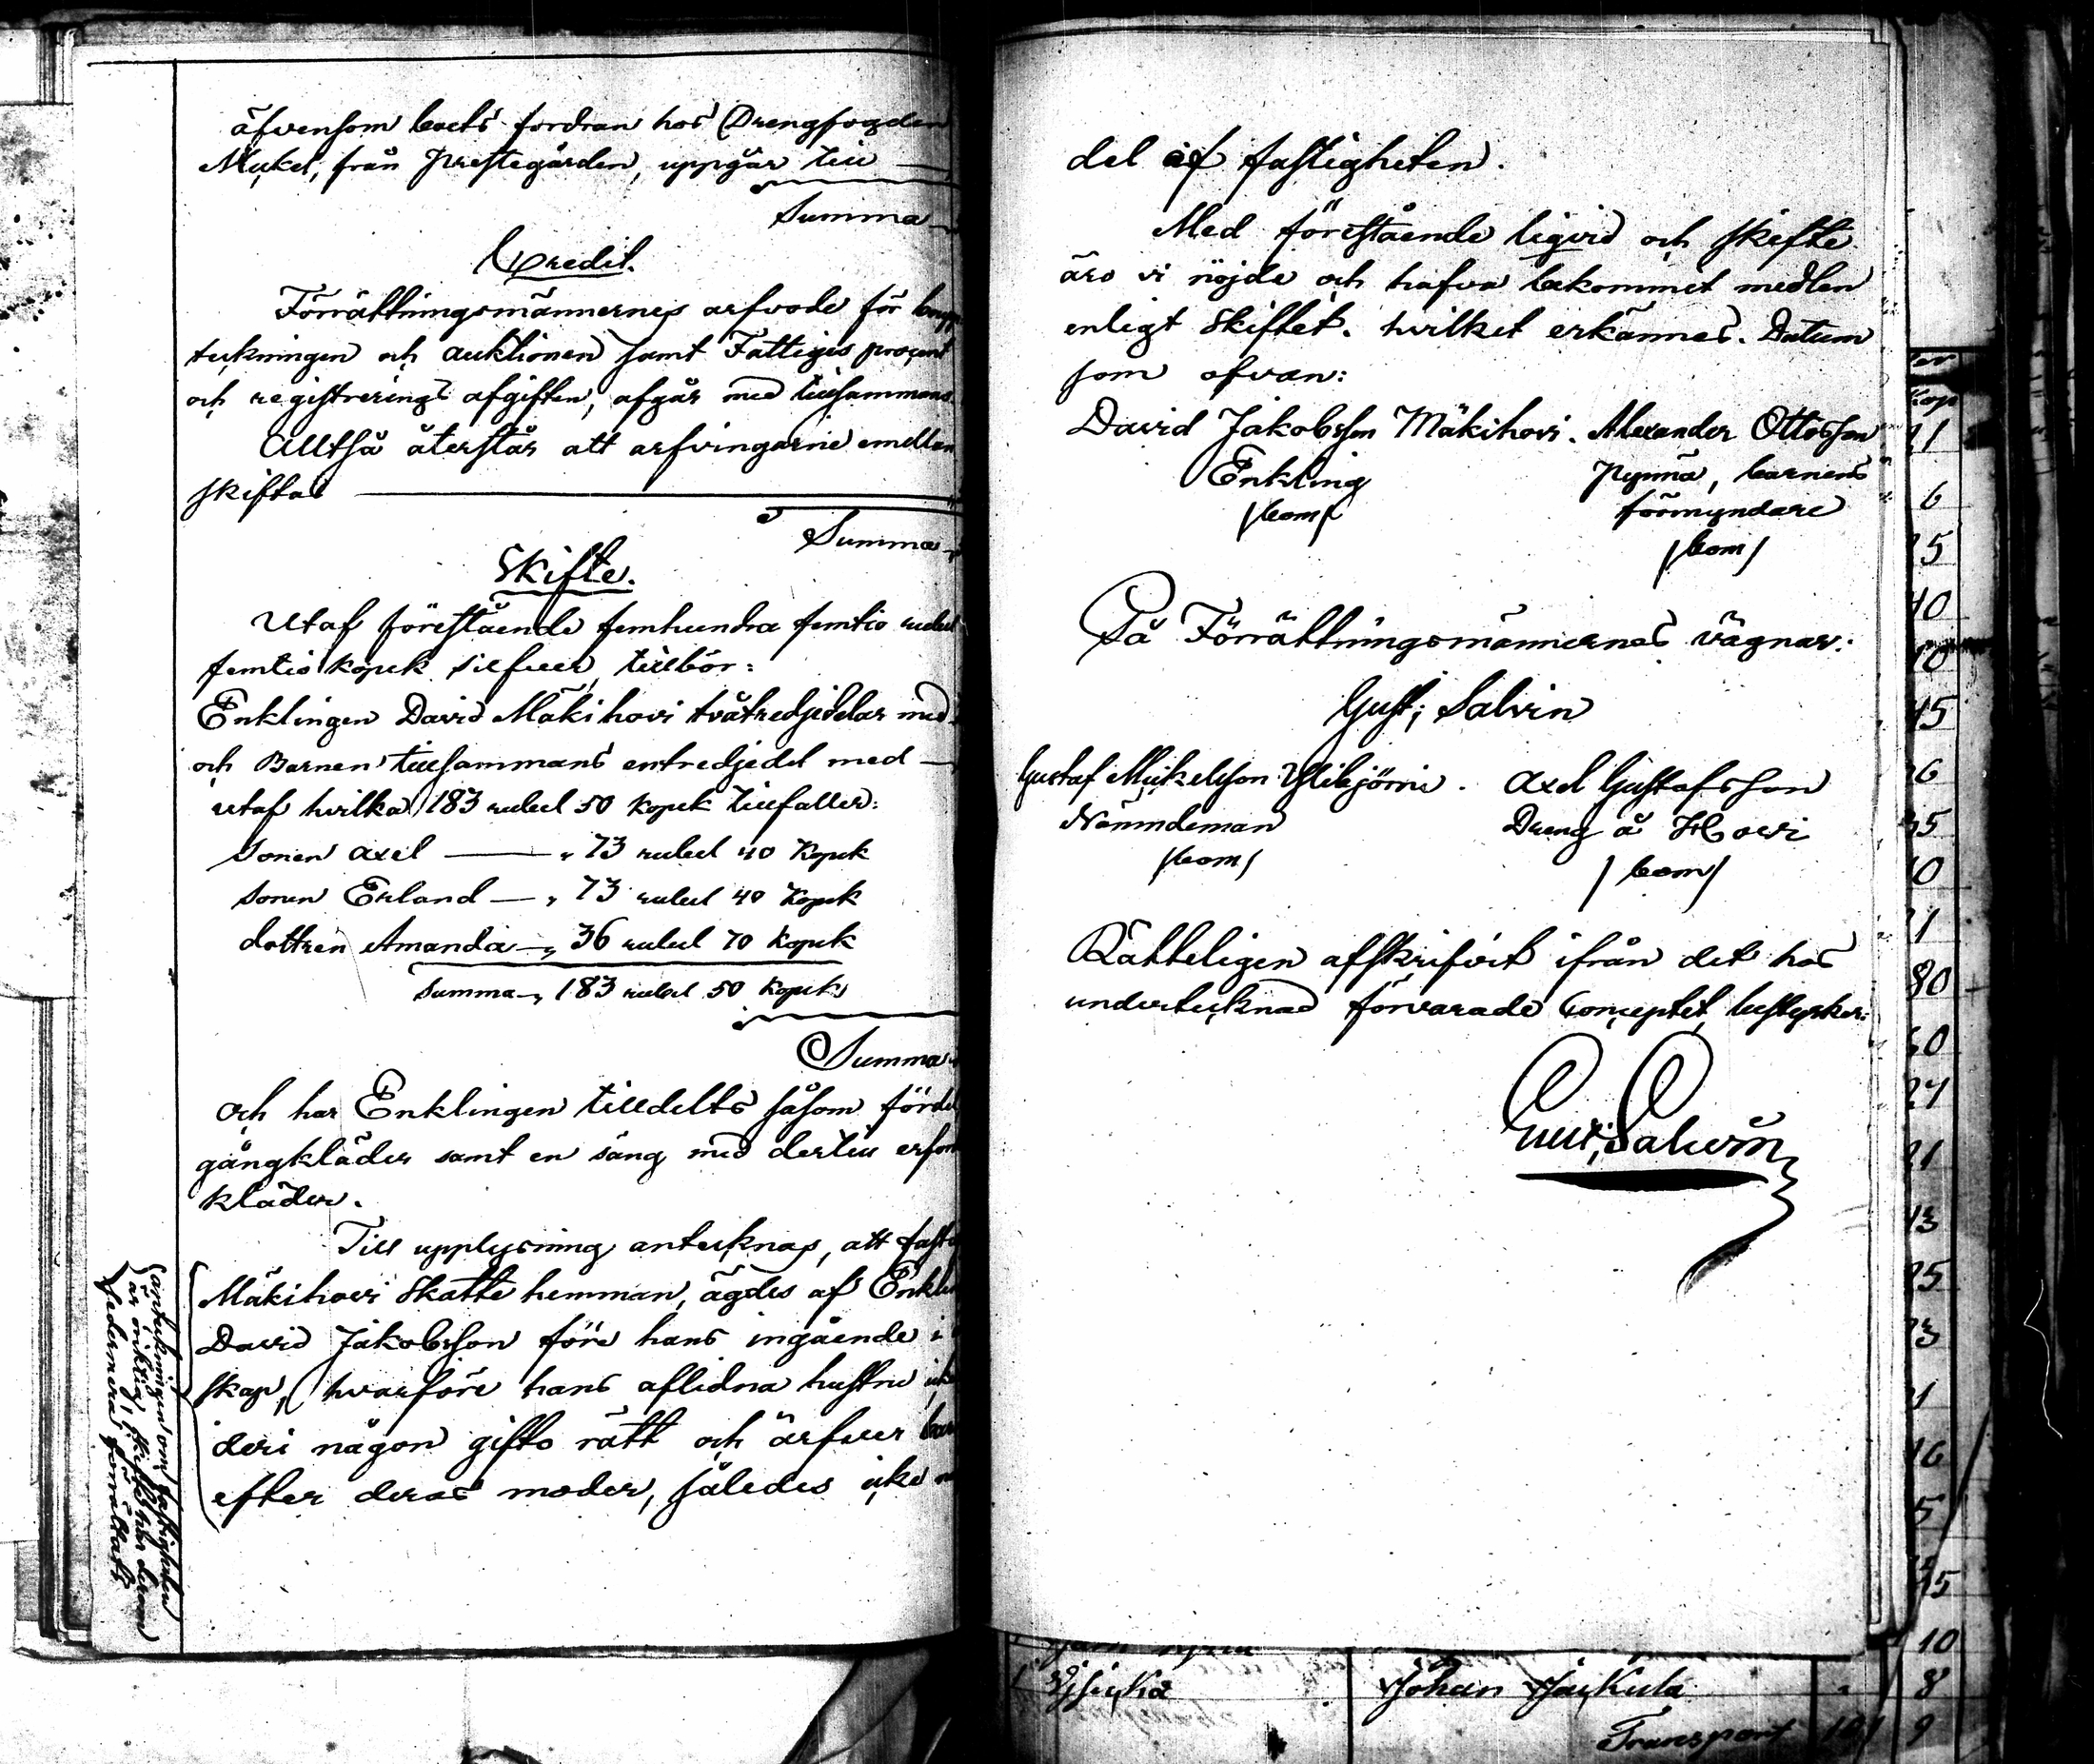 äfvensom boets fordran hos Drengfogden
Mickel, från Prestegården, uppgår till
Summa
Credit.
Förrättningsmännernes arfvode för boupp
teckningen och auktionen samt Fattiges procent
och registrerings afgiften, afgår med tillsammans
Alltså återstår att arfvingarne emellan
skiftas
Summa
Skifte.
Utaf förestående femhundra femtio rubel
femtio kopek silfver, tillbör:
Enklingen David Mäkihovi tvåtredjedelar med
och Barnen tillsammans entredjedel med
utaf hvilka 183 rubel 50 kopek tillfaller:
sonen Axel — „ 73 rubel 40 kopek
sonen Erland — „ 73 rubel 40 kopek
dottren Amanda — „ 36 rubel 70 kopek
Summa — „ 183 rubel 50 kopek
Summa
Och har Enklingen tilldelts såsom fördel
gångkläder samt en säng med dertill erfor
kläder.
Till upplysning antecknas, att fasti
Mäkihovi Skatte hemman, ägdes af Enklin
David Jakobsson före hans ingående i
skap, hvarföre hans aflidna hustru icke
deri någon gifto rätt och ärfver bar
efter deras moder, således icke
anteckningen om fastigheten
är oriktig, skiftet har deraf
federmera förrättats
del af fastigheten.
Med förestående liqvid och skifte
äro vi nöjde och hafva bekommit medlen
enligt skiftet. hvilket erkännes. Datum
som ofvan:
David Jakobsson Mäkihovi. Alexander Ottosson
Enkling Pynnä, barnens
/bom/ förmyndare
/bom/
På Förrättningsmännernes vägnar:
Gust; Salvin
Gustaf Mickelsson Ylibjörni. Axel Gustafsson
Nämndeman Dreng å Hovi
/bom/ /bom/
Rätteligen afskrifvit ifrån det hos
undertecknad förvarade Conceptet, bestyrker:
Gust; Salvin
Johan
Transport